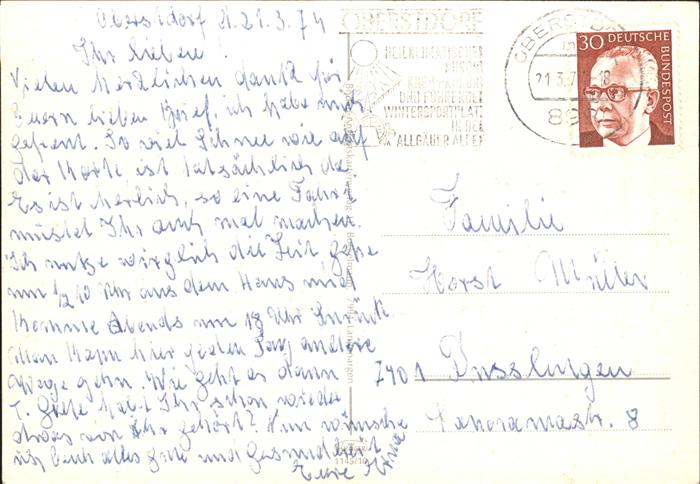 Oberstdorf d. 21.3.74
Ihr Lieben!
Vielen herzlichen dank für
Euern lieben Brief, ich habe mich
gefreut. So viel Schnee wie auf
der Karte ist tatsächlich da
Es ist herlich, so eine Fahrt
müstet Ihr auch mal machen
Ich nutze wirglich die Zeit, gehe
um 1/2 10 Uhr aus dem Haus und
komme Abends um 18 Uhr zurück
Man kann hier jeden Tag andere
Wege gehn. Wie geht es dann
T. Grete habt Ihr schon wieder
etwas von Ihr gehört? Nun wünsche
ich Euch alles gute und gesundheit
Eure
OBERSTDORF
HEILKLIMATISCHER
KURORT
UND FÜHRENDER
WINTERSPORTPLATZ
IN DEN
ALLGÄUER ALPEN
OBERSTDORF
21.3.74
898
30 DEUTSCHE
BUNDESPOST
Familie
Horst Müller
7401 Dusslingen
Panoramastr. 8